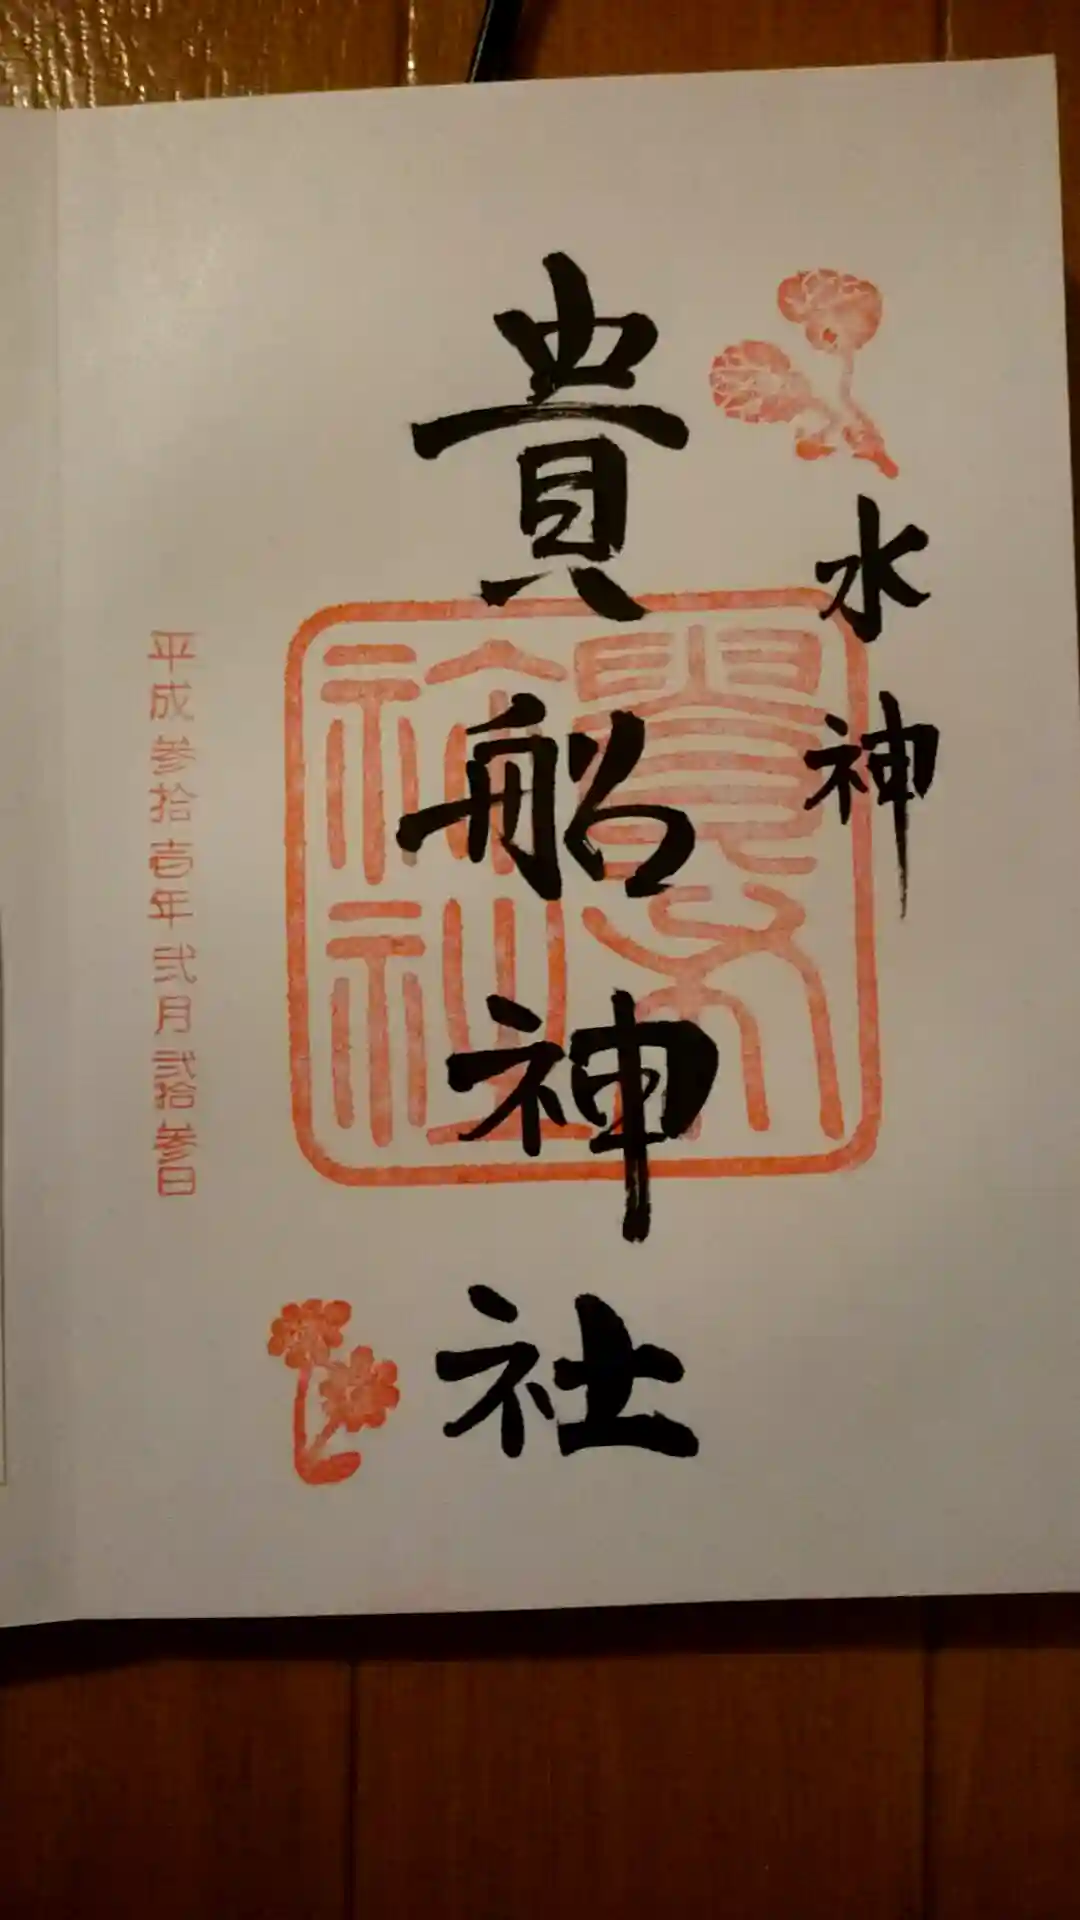 水神
貴船神社
平成参拾壱年弐月弐拾参日